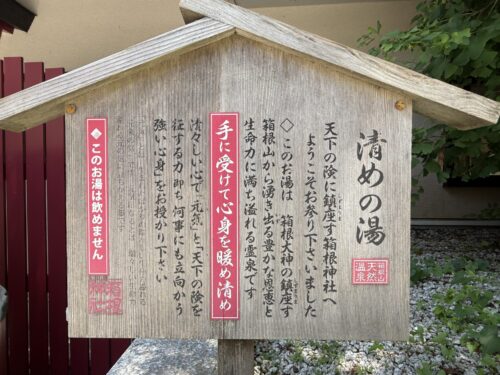 清めの湯
箱根山
天然
温泉
天下の険に鎮座す箱根神社へ
ようこそお参り下さいました
◇このお湯は 箱根大神の鎮座す
箱根山から湧き出る豊かな恩恵と
生命力に満ち溢れる霊泉です
手に受けて心身を暖め清め
清々しい心で「元気」と「天下の険を
征する力 即ち 何事にも立向かう
強い心身」をお授かり下さい
◆このお湯は飲めません